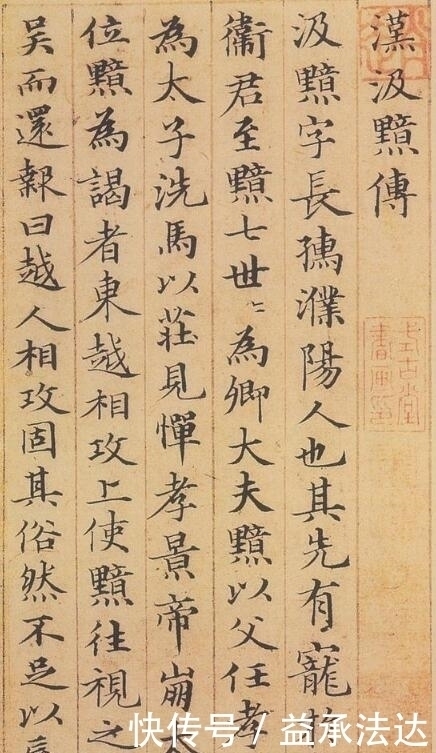 漢汲黯傳
汲黯字長孺濮陽人也其先有寵於
衞君至黯七世〻為卿大夫黯以父任孝
為太子洗馬以莊見憚孝景帝崩
位黯為謁者東越相攻上使黯往視之
吴而還報曰越人相攻固其俗然不足以
快传号 / 益承法达